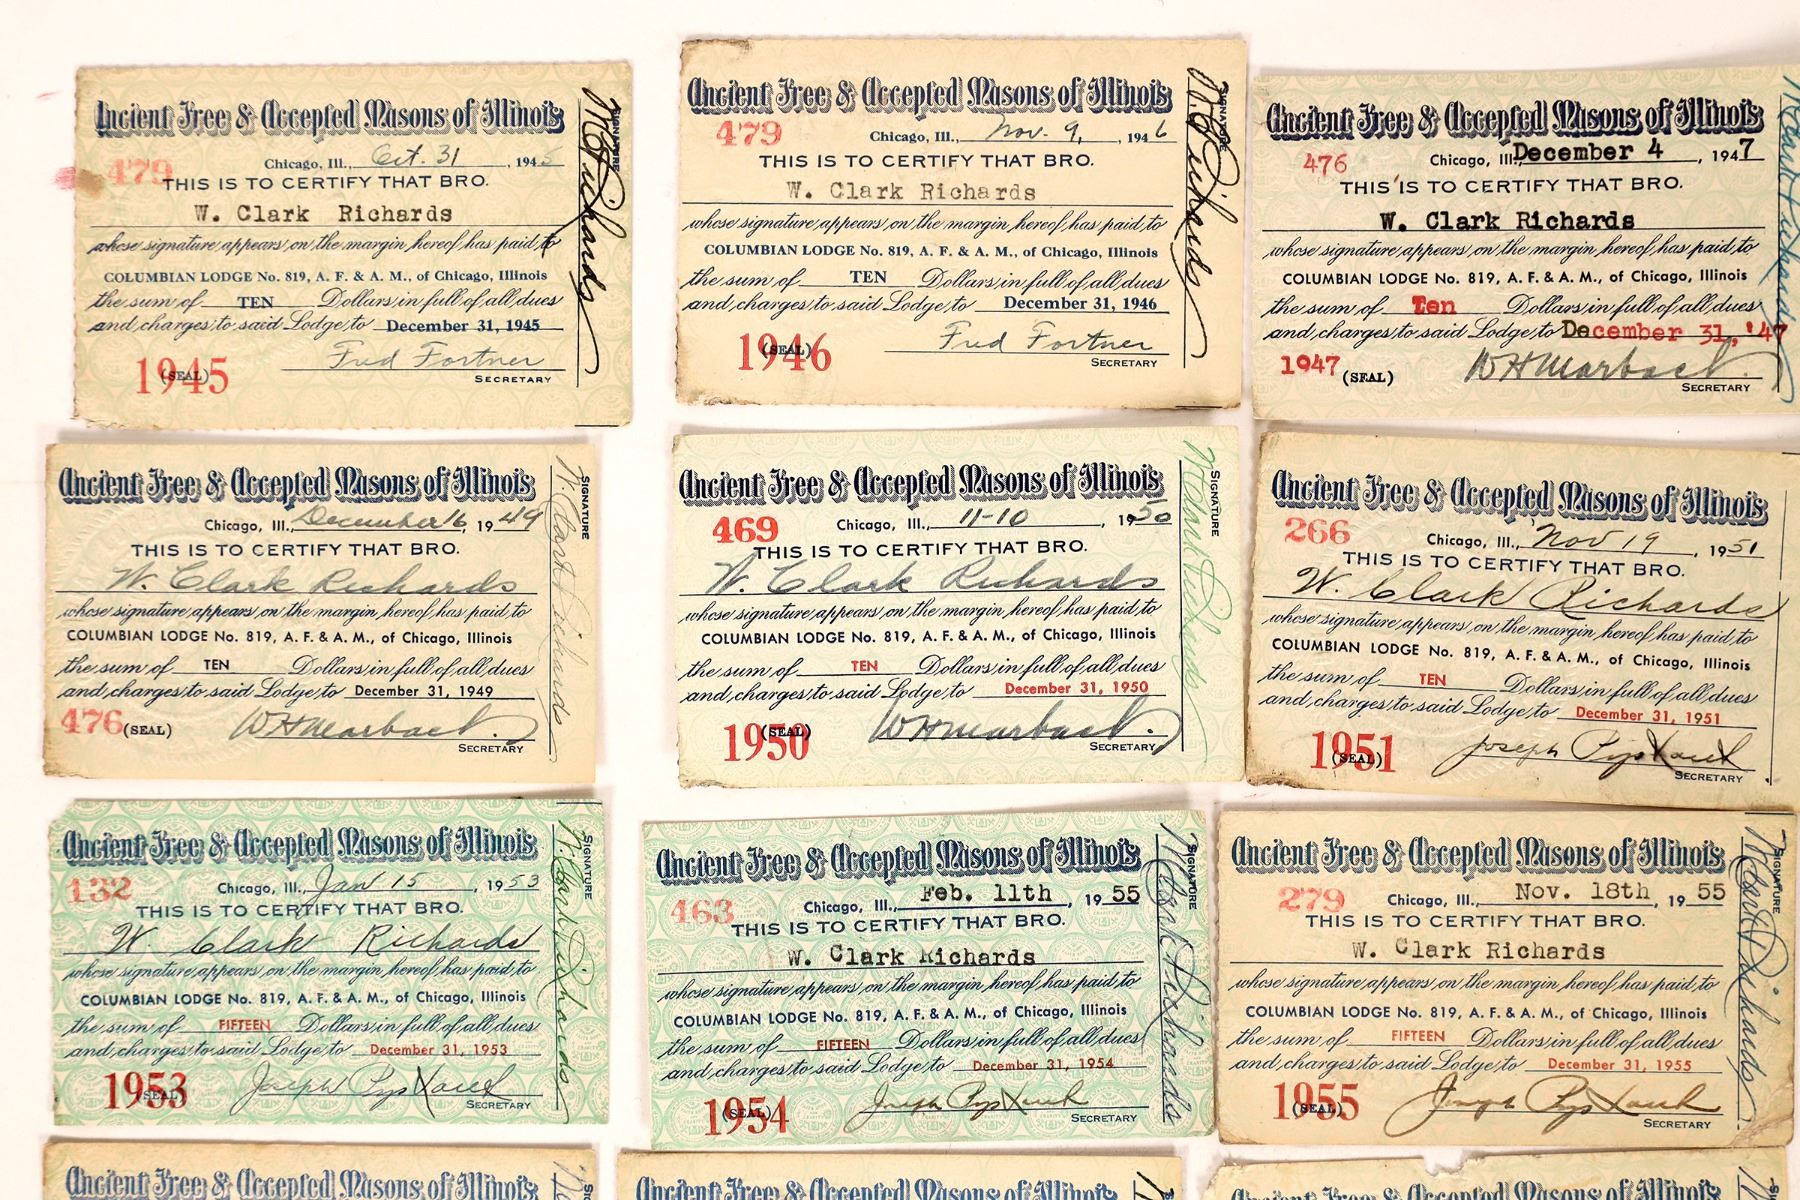 Ancient Free & Accepted Masons of Illinois
479 Chicago, Ill., Oct. 31, 1945
THIS IS TO CERTIFY THAT BRO.
W. Clark Richards
whose signature appears on the margin hereof has paid to
COLUMBIAN LODGE No. 819, A. F. & A. M., of Chicago, Illinois
the sum of TEN Dollars in full of all dues
and charges to said Lodge to December 31, 1945
1945 (SEAL) Fred Fortner
SECRETARY
SIGNATURE
W C Richards
Ancient Free & Accepted Masons of Illinois
479 Chicago, Ill., Nov. 9, 1946
THIS IS TO CERTIFY THAT BRO.
W. Clark Richards
whose signature appears on the margin hereof has paid to
COLUMBIAN LODGE No. 819, A. F. & A. M., of Chicago, Illinois
the sum of TEN Dollars in full of all dues
and charges to said Lodge to December 31, 1946
1946 (SEAL) Fred Fortner
SECRETARY
SIGNATURE
W C Richards
Ancient Free & Accepted Masons of Illinois
476 Chicago, Ill., December 4, 1947
THIS IS TO CERTIFY THAT BRO.
W. Clark Richards
whose signature appears on the margin hereof has paid to
COLUMBIAN LODGE No. 819, A. F. & A. M., of Chicago, Illinois
the sum of Ten Dollars in full of all dues
and charges to said Lodge to December 31, '47
1947 (SEAL) W H Marbach
SECRETARY
W Clark Richards
Ancient Free & Accepted Masons of Illinois
Chicago, Ill., December 16, 1949
THIS IS TO CERTIFY THAT BRO.
W. Clark Richards
whose signature appears on the margin hereof has paid to
COLUMBIAN LODGE No. 819, A. F. & A. M., of Chicago, Illinois
the sum of TEN Dollars in full of all dues
and charges to said Lodge to December 31, 1949
476 (SEAL) W H Marbach
SECRETARY
SIGNATURE
W. Clark Richards
Ancient Free & Accepted Masons of Illinois
469 Chicago, Ill., 11-10, 1950
THIS IS TO CERTIFY THAT BRO.
W. Clark Richards
whose signature appears on the margin hereof has paid to
COLUMBIAN LODGE No. 819, A. F. & A. M., of Chicago, Illinois
the sum of TEN Dollars in full of all dues
and charges to said Lodge to December 31, 1950
1950 (SEAL) W H Marbach
SECRETARY
SIGNATURE
W Clark Richards
Ancient Free & Accepted Masons of Illinois
266 Chicago, Ill., Nov 19, 1951
THIS IS TO CERTIFY THAT BRO.
W. Clark Richards
whose signature appears on the margin hereof has paid to
COLUMBIAN LODGE No. 819, A. F. & A. M., of Chicago, Illinois
the sum of TEN Dollars in full of all dues
and charges to said Lodge to December 31, 1951
1951 (SEAL) Joseph
SECRETARY
Ancient Free & Accepted Masons of Illinois
132 Chicago, Ill., Jan 15, 1953
THIS IS TO CERTIFY THAT BRO.
W. Clark Richards
whose signature appears on the margin hereof has paid to
COLUMBIAN LODGE No. 819, A. F. & A. M., of Chicago, Illinois
the sum of FIFTEEN Dollars in full of all dues
and charges to said Lodge to December 31, 1953
1953 (SEAL) Joseph
SECRETARY
SIGNATURE
W. Clark Richards
Ancient Free & Accepted Masons of Illinois
463 Chicago, Ill., Feb. 11th, 1955
THIS IS TO CERTIFY THAT BRO.
W. Clark Richards
whose signature appears on the margin hereof has paid to
COLUMBIAN LODGE No. 819, A. F. & A. M., of Chicago, Illinois
the sum of FIFTEEN Dollars in full of all dues
and charges to said Lodge to December 31, 1954
1954 (SEAL) Joseph
SECRETARY
SIGNATURE
W Clark Richards
Ancient Free & Accepted Masons of Illinois
279 Chicago, Ill., Nov. 18th, 1955
THIS IS TO CERTIFY THAT BRO.
W. Clark Richards
whose signature appears on the margin hereof has paid to
COLUMBIAN LODGE No. 819, A. F. & A. M., of Chicago, Illinois
the sum of FIFTEEN Dollars in full of all dues
and charges to said Lodge to December 31, 1955
1955 (SEAL) Joseph
SECRETARY
SIGNATURE
W Clark Richards
Ancient Free & Accepted Masons of Illinois
Ancient Free & Accepted Masons of Illinois
Ancient Free & Accepted Masons of Illinois